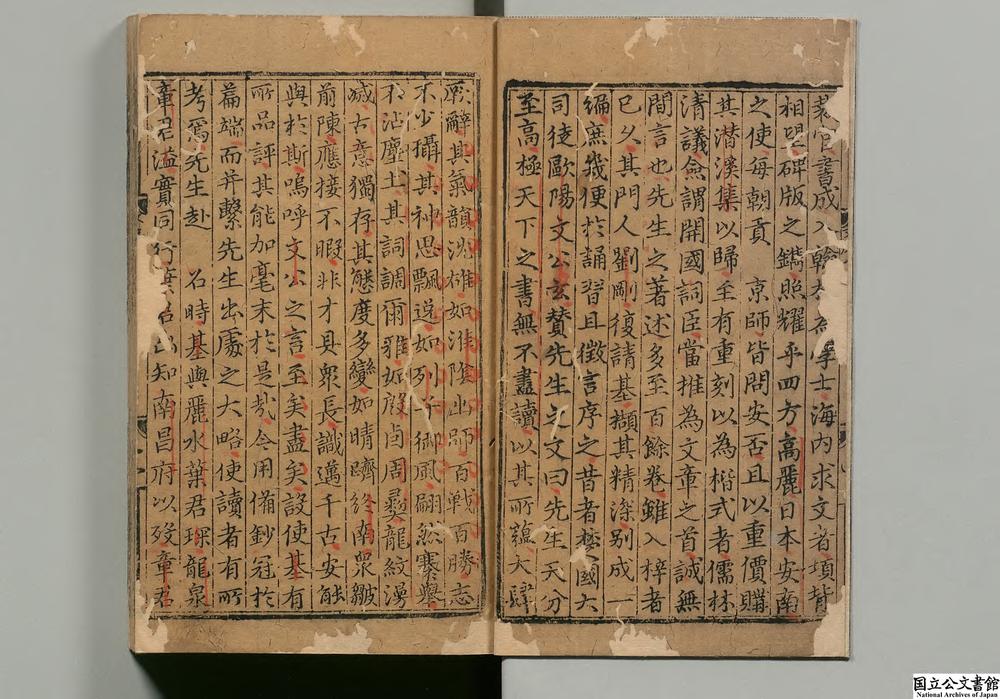 裁官書成入翰林為學士海内求文者項背
相望碑版之鐫照耀乎四方高麗日本安南
之使每朝貢 京師皆問安否且以重價購
其潜溪集以歸至有重刻以為楷式者儒林
清議僉謂開國詞臣當推為文章之首誠無
間言也先生之著述多至百餘卷雖入梓者
已久其門人劉剛復請基擷其精深别成一
編庶幾便於誦習且徴言序之昔者楚國大
司徒歐陽文公玄贊先生之文曰先生天分
至高極天下之書無不盡讀以其所藴大肆
厥辭其氣韻沈雄如淮陰出師百戰百勝志
不少攝其神思飄逸如列子御風翩然褰舉
不沾塵土其詞調爾雅如殷卣周彛龍紋漫
滅古意獨存其態度多變如晴躋終南衆皺
前陳應接不暇非才具衆長識邁千古安能
與於斯嗚呼文公之言至矣盡矣設使基有
所品評其能加毫末於是哉今用備鈔冠於
篇端而并繫先生出處之大略使讀者有所
考焉先生赴 召時基與麗水葉君琛龍泉
章君溢實同行葉君出知南昌府以殁章君
国立公文書館
National Archives of Japan